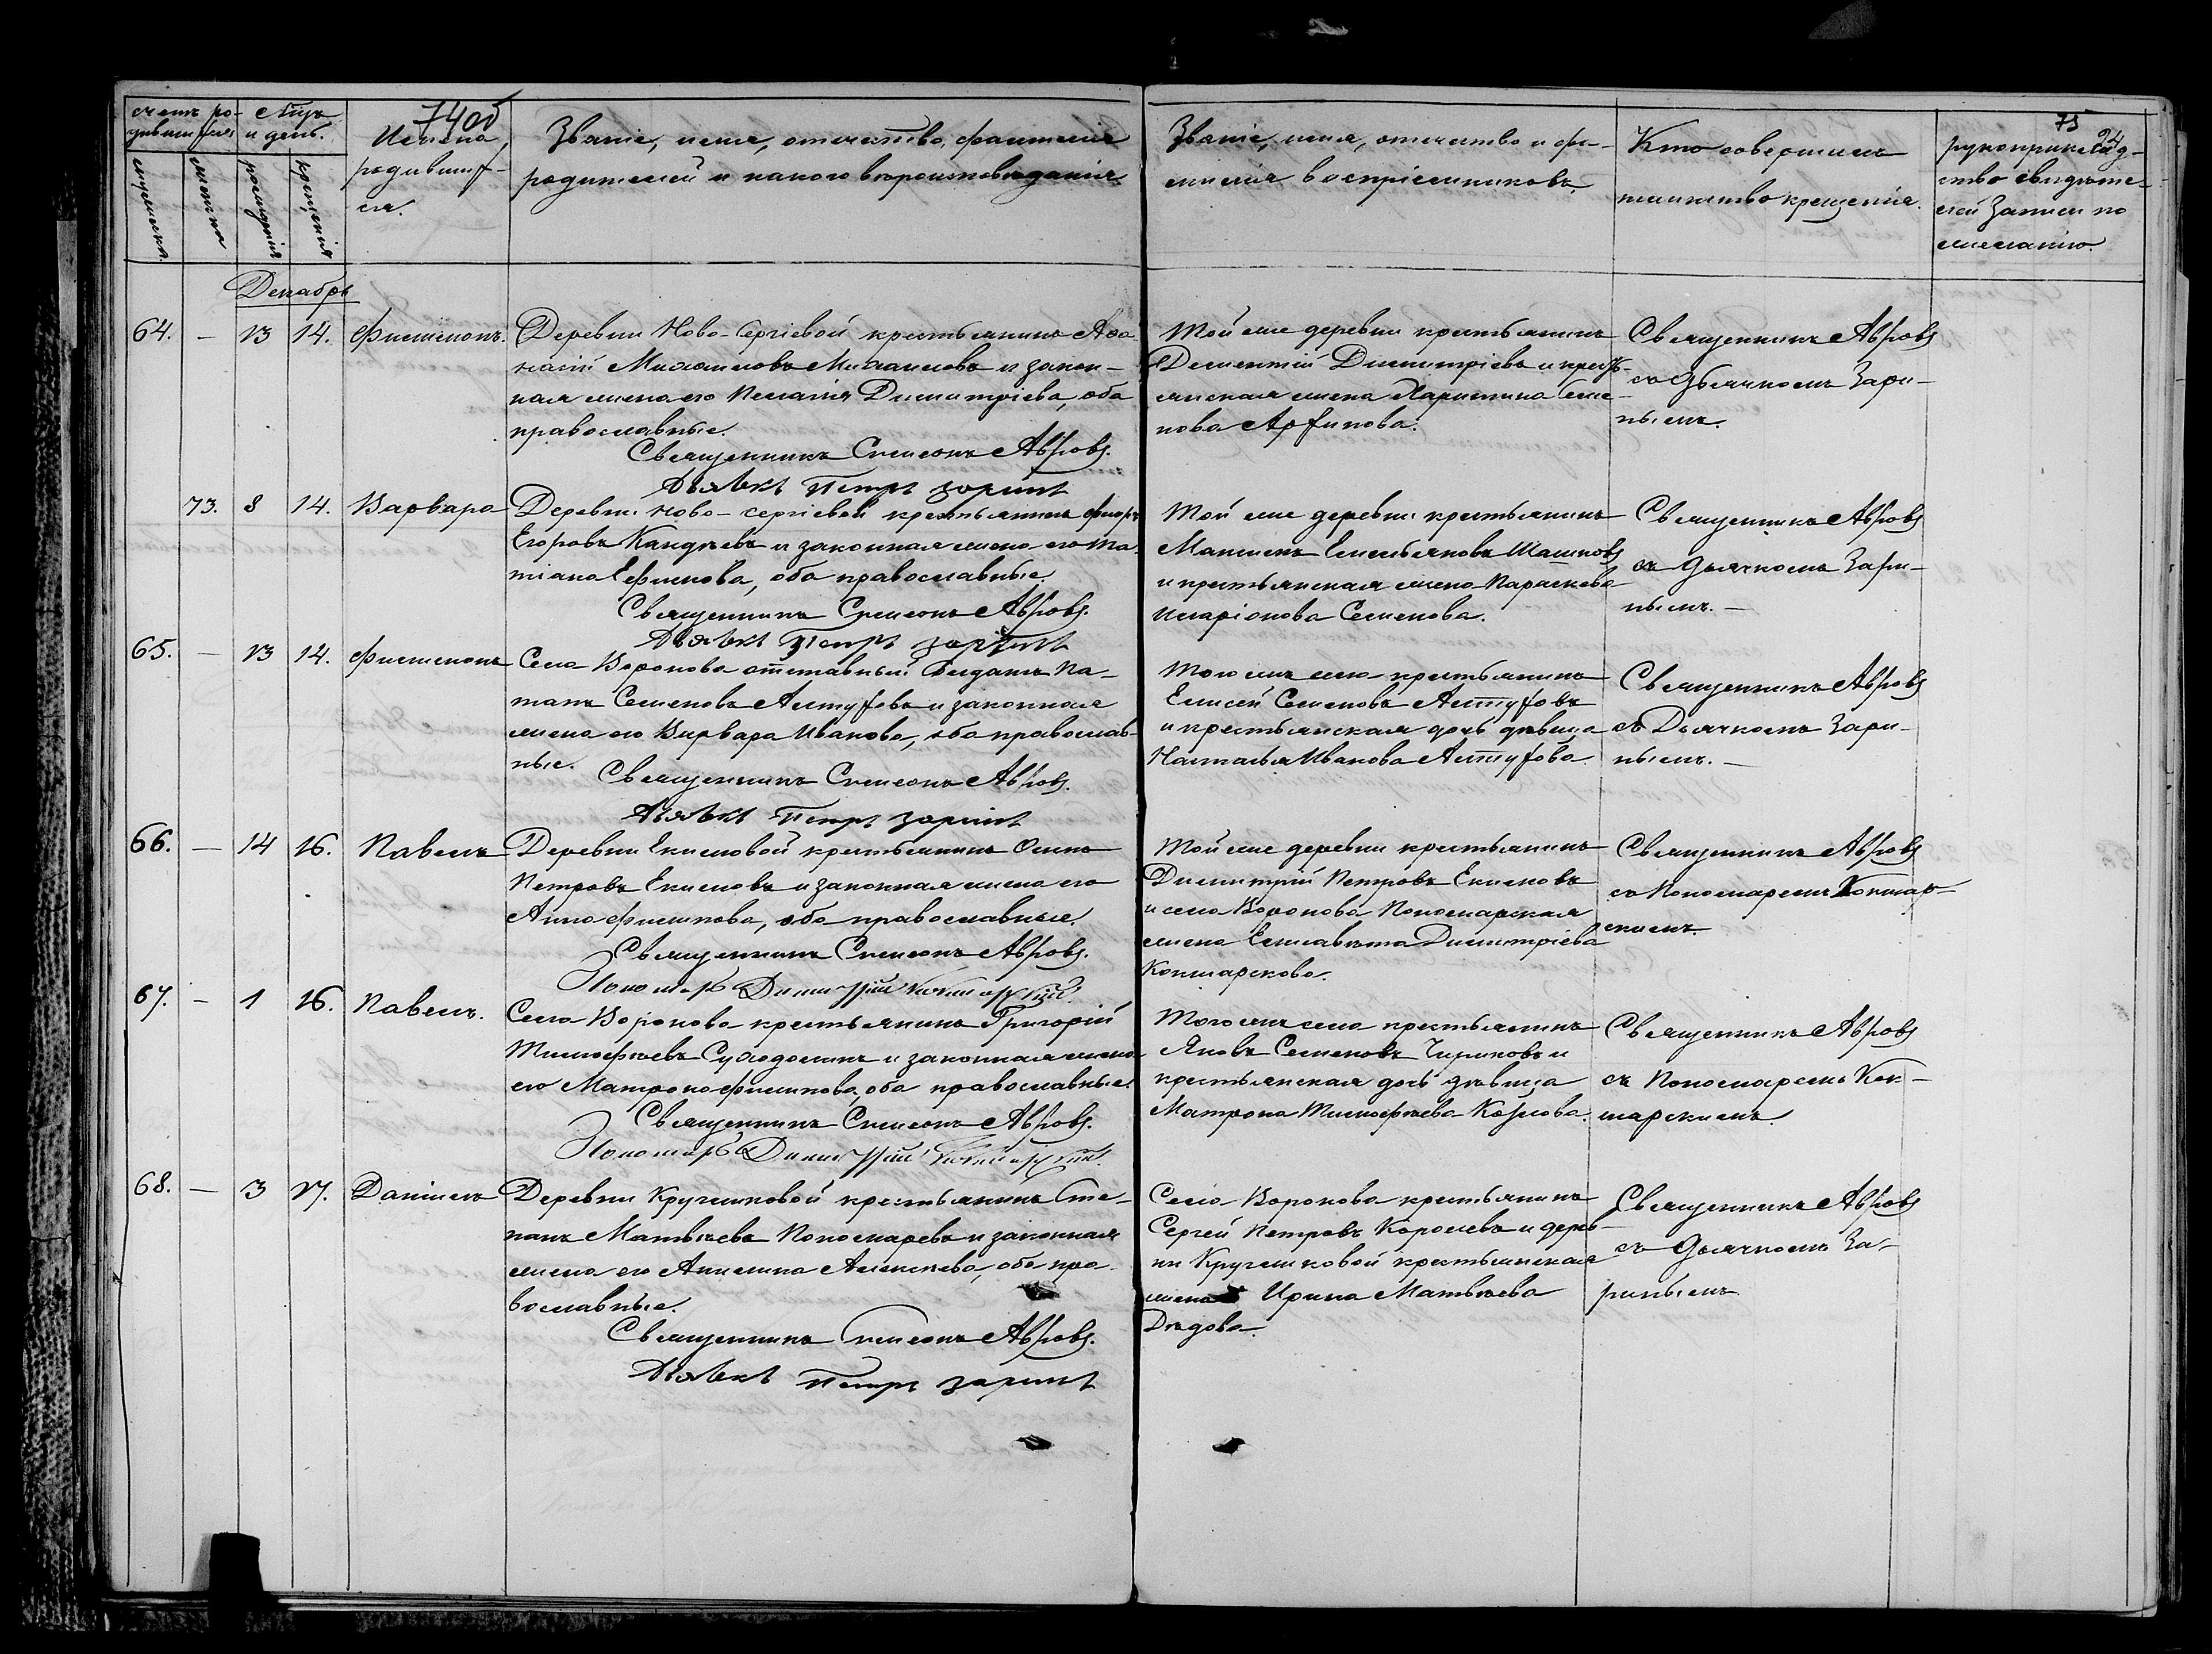 74об
75
счетъ ро-
дившихся
Мѣс.
и день.
мужеска.
женска
рожденія
крещенія
Имена
родивших-
ся.
Званіе, имя, отчество, фамилія
родителей и какого вѣроисповѣданія
Званіе, имя, отчество и фа-
милія воспріемниковъ.
Кто совершилъ
таинство крещенія.
рукоприклад-
ство свидѣте-
лей записи по
желанію.
Декабрь
64. — 13 14. Филимонъ.
Деревни Ново-Сергіевой крестьянинъ Афа-
насій Михаиловъ Михаиловъ и закон-
ная жена его Пелагія Димитріева, оба
православные.
Священникъ Симеонъ Авровъ.
Дьячекъ Петръ Заринъ
Той же деревни крестьянинъ
Дементій Димитріевъ и кресть-
янская жена Харитина Семе-
нова Арфинова.
Священникъ Авровъ
съ Дьячкомъ Зари-
нымъ.
73. 8 14. Варвара
Деревни Ново-Сергіевой крестьянинъ Фиоръ
Егоровъ Кандѣевъ и законная жена его Та-
тіана Ефимова, оба православные.
Священникъ Симеонъ Авровъ.
Дьячекъ Петръ Заринъ
Той же деревни крестьянинъ
Максимъ Емельяновъ Машковъ
и крестьянская жена Параскева
Иларіонова Семенова.
Священникъ Авровъ
съ Дьячкомъ Зари-
нымъ. —
65. — 13 14. Филимонъ
Села Воронова отставный Солдатъ По-
тапъ Семеновъ Алтуховъ и законная
жена его Варвара Иванова, оба православ-
ные.
Священникъ Симеонъ Авровъ.
Дьячекъ Петръ Заринъ
Того же села крестьянинъ
Елисей Семеновъ Алтуховъ
и крестьянская дочь дѣвица
Наталья Иванова Алтухова
Священникъ Авровъ
съ Дьячкомъ Зари-
нымъ. —
66. — 14 16. Павелъ
Деревни Екимовой крестьянинъ Осипъ
Петровъ Екимовъ и законная жена его
Анна Филипова, оба православные.
Священникъ Симеонъ Авровъ.
Пономарь Димитрій Кокшарскій.
Той же деревни крестьянинъ
Димитрій Петровъ Екимовъ
и села Воронова Пономарская
жена Елисавета Димитріева
Кокшарскова.
Священникъ Авровъ
съ Пономаремъ Кокшар-
скимъ.
67. — 1 16. Павелъ.
Села Воронова крестьянинъ Григорій
Тимофѣевъ Суходолинъ и законная жена
его Матрона Филипова, оба православные.
Священникъ Симеонъ Авровъ.
Пономарь Димитрій Кокшарскій.
Того же села крестьянинъ
Яковъ Семеновъ Чириковъ и
крестьянская дочь дѣвица
Матрона Тимофѣева Козлова.
Священникъ Авровъ
съ Пономаремъ Кок-
шарскимъ.
68. — 3 17. Даніилъ
Деревни Кругликовой крестьянинъ Сте-
панъ Матвѣевъ Пономаревъ и законная
жена его Акилина Алексѣева, оба пра-
вославные.
Священникъ Симеонъ Авровъ.
Дьячекъ Петръ Заринъ
Села Воронова крестьянинъ
Сергей Петровъ Королевъ и дерев-
ни Кругликовой крестьянская
жена Ирина Матвѣева
Дѣдова.
Священникъ Авровъ
съ Дьячкомъ За-
ринымъ